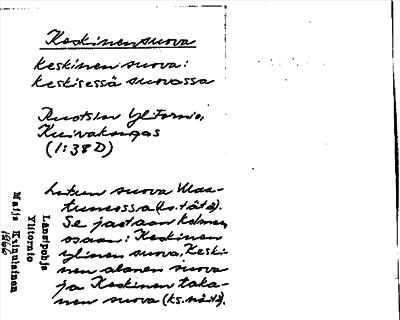 Keskinensuova
keskinen suova:
keskisessä suovassa
Ruotsin Ylitornio,
Kuivakangas
(1:38 D)
suova Maa-
tumossa (ks. tätä).
Se jaetaan kolmeen
osaan: Keskinen
ylinen suova, Keski-
nen alanen suova
ja Keskinen taka-
nen suova (ks. näitä).
Länsipohja
Ylitornio
Maija
1966